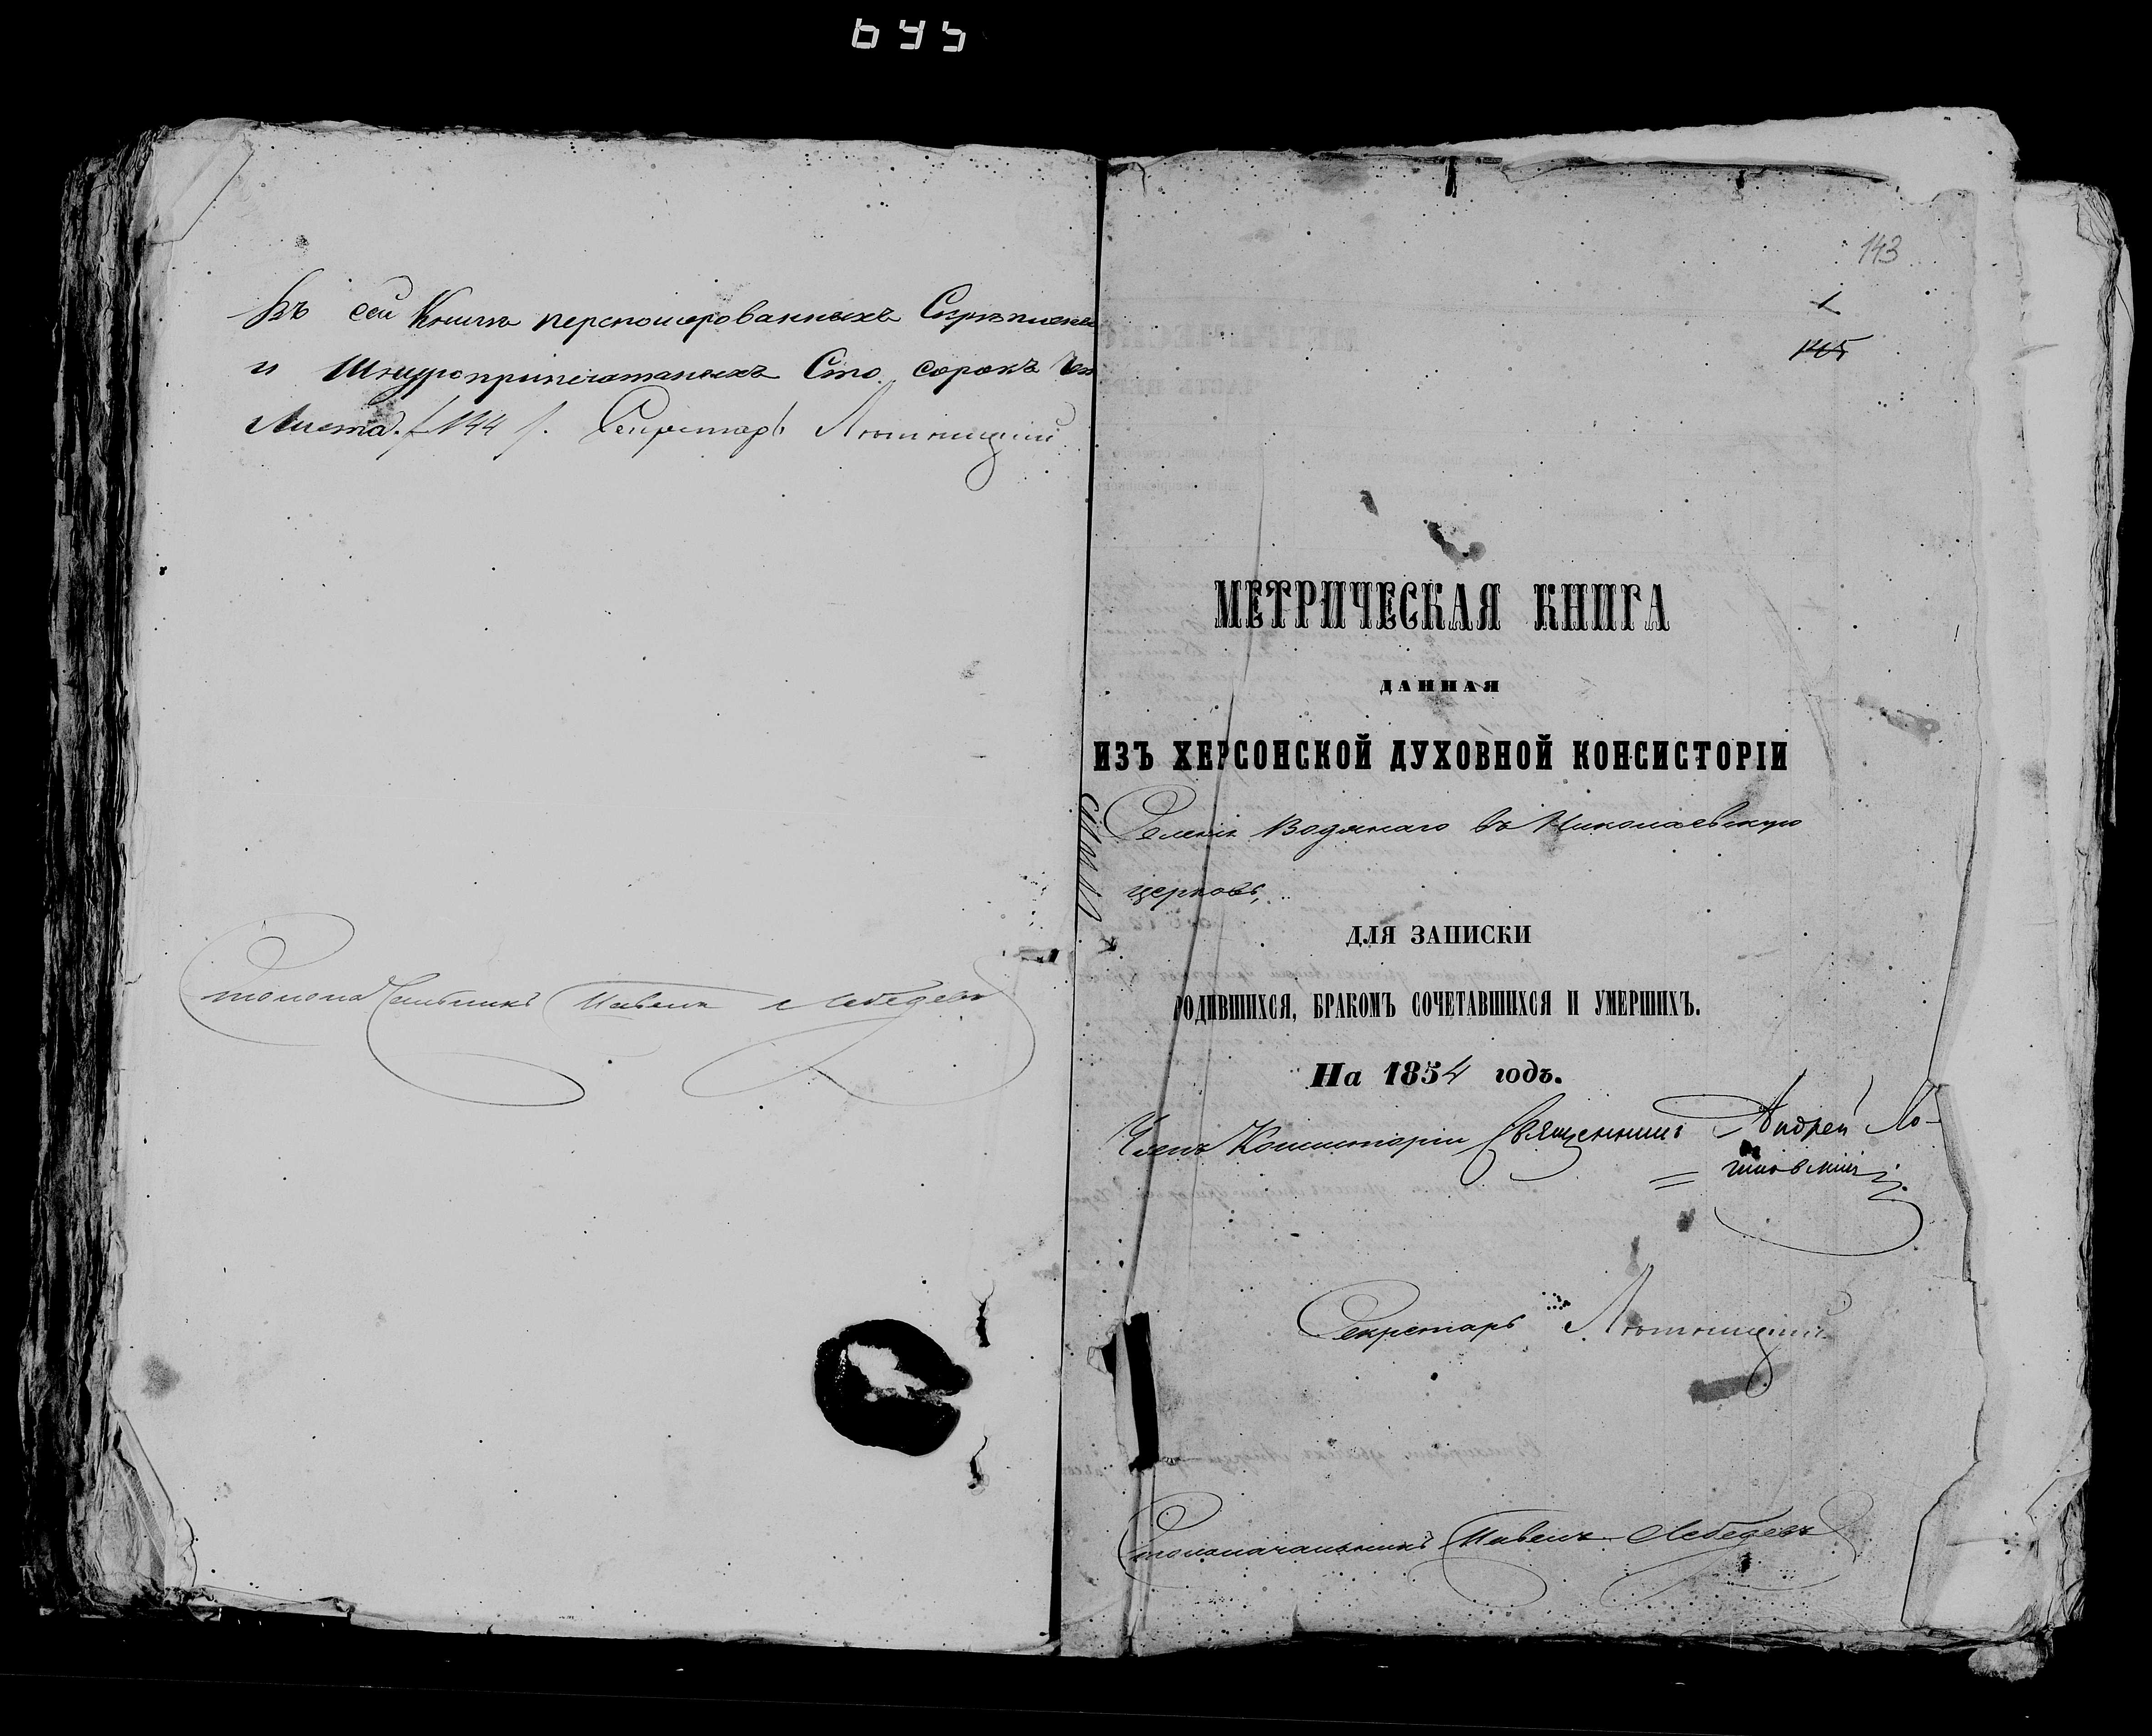 645
Въ сей Книгѣ перономерованныхъ Скрѣпленныхъ
и Шнуроприпечатаныхъ Сто сорокъ
Листа. /144/. Секретарь
Столоначальникъ Павелъ Лебедевъ
143
1
145
МЕТРИЧЕСКАЯ КНИГА
ДАННАЯ
ИЗЪ ХЕРСОНСКОЙ ДУХОВНОЙ КОНСИСТОРІИ
Селенія Водянаго въ Николаевскую
церковь,
ДЛЯ ЗАПИСКИ
РОДИВШИХСЯ, БРАКОМЪ СОЧЕТАВШИХСЯ И УМЕРШИХЪ.
На 1854 годъ.
Членъ Консисторіи Священникъ Андрей Ло-
Секретарь
Столоначальникъ Павелъ Лебедевъ